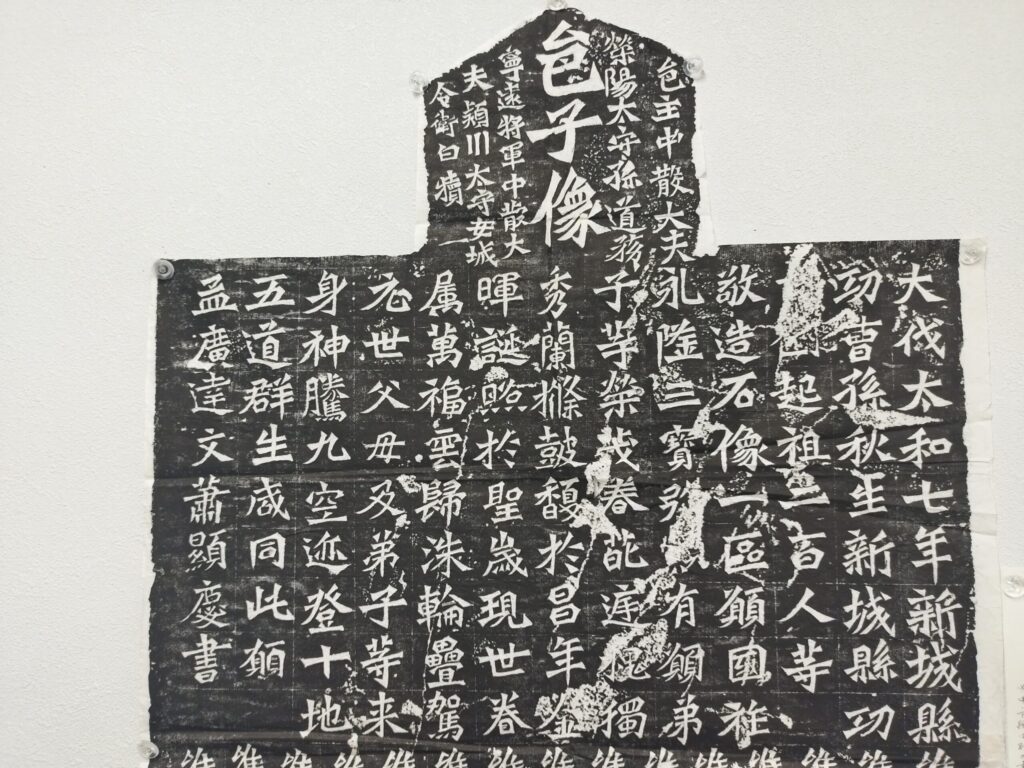 邑主中散大夫
滎陽太守孫道務
邑子像
寧遠將軍中散大
夫潁川太守安城
令衛白犢
大伐太和七年新城縣
功曹孫秋生新城縣功
起祖二百人等
敬造石像一區願國祚
永隆三寶弥顯有願弟
子等榮茂春葩庭槐獨
秀蘭條鼓馥於昌年金
暉誕照於聖歲現世眷
属萬福雲歸洙輪疊駕
元世父母及弟子等来
身神騰九空迹登十地
五道群生咸同此願
孟廣達文蕭顯慶書